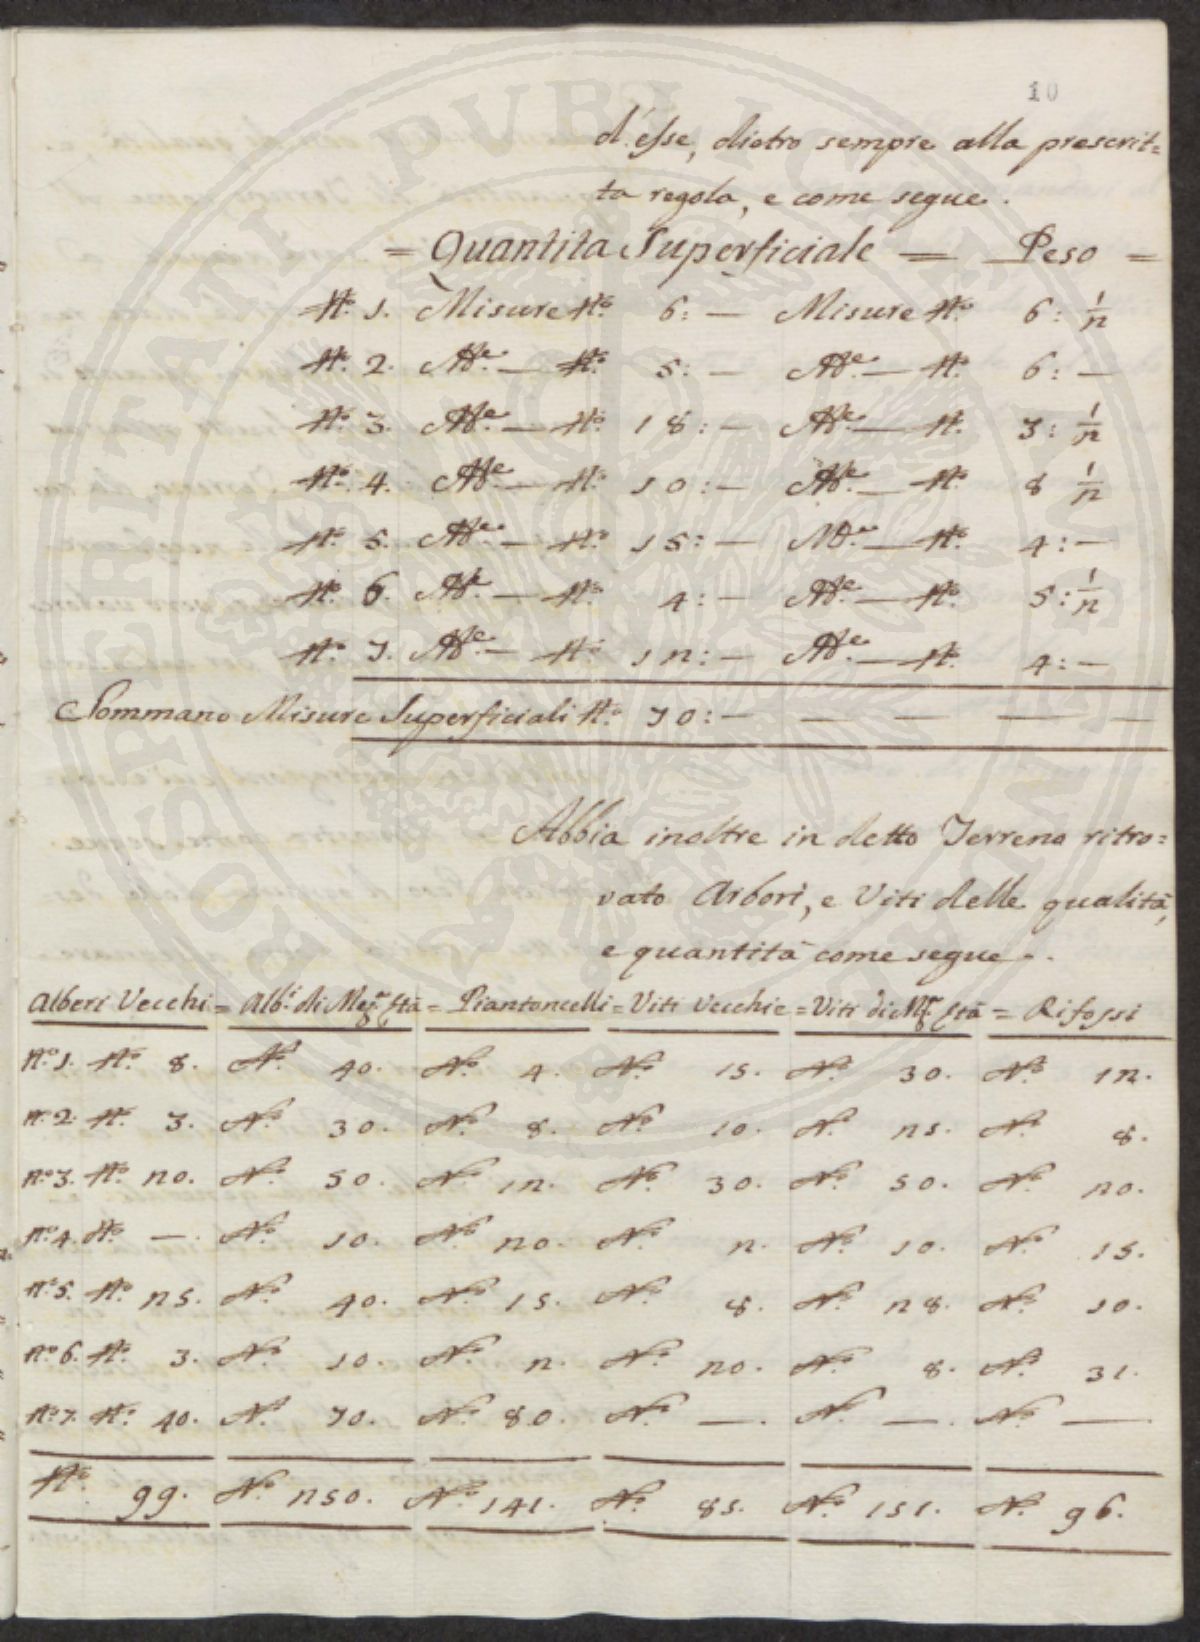 10
d'esse, dietro sempre alla prescrit=
ta regola, e come segue.
= Quantita Superficiale = Peso =
N.º 1. Misure N.º 6: — Misure N.º 6: 1/2
N.º 2. Md.e — N.º 5: — Md.e — N.º 6: —
N.º 3. Md.e — N.º 18: — Md.e — N.º 3: 1/2
N.º 4. Md.e — N.º 10: — Md.e — N.º 8 1/2
N.º 5. Md.e — N.º 15: — Md.e — N.º 4: —
N.º 6. Md.e — N.º 4: — Md.e — N.º 5: 1/2
N.º 7. Md.e — N.º 12: — Md.e — N.º 4: —
Sommano Misure Superficiali N.º 70: — — — — —
Abbia inoltre in detto Terreno ritro=
vato Arbori, e Viti delle qualità,
e quantità come segue.
Alberi Vecchi = Alb.i di Mez.a Età = Piantoncelli = Viti Vecchie = Viti di Mz.a Età = Rifossi
N.º 1. N.º 8. N.º 40. N.º 4. N.º 15. N.º 30. N.º 12.
N.º 2. N.º 3. N.º 30. N.º 8. N.º 10. N.º 25. N.º 8.
N.º 3. N.º 20. N.º 50. N.º 12. N.º 30. N.º 50. N.º 20.
N.º 4. N.º —. N.º 10. N.º 20. N.º 2. N.º 10. N.º 15.
N.º 5. N.º 25. N.º 40. N.º 15. N.º 8. N.º 28. N.º 10.
N.º 6. N.º 3. N.º 10. N.º 2. N.º 20. N.º 8. N.º 31.
N.º 7. N.º 40. N.º 70. N.º 80. N.º —. N.º —. N.º —.
N.º 99. N.º 250. N.º 141. N.º 85. N.º 151. N.º 96.
PROSPERITATI PUBLICAE AUGENDAE